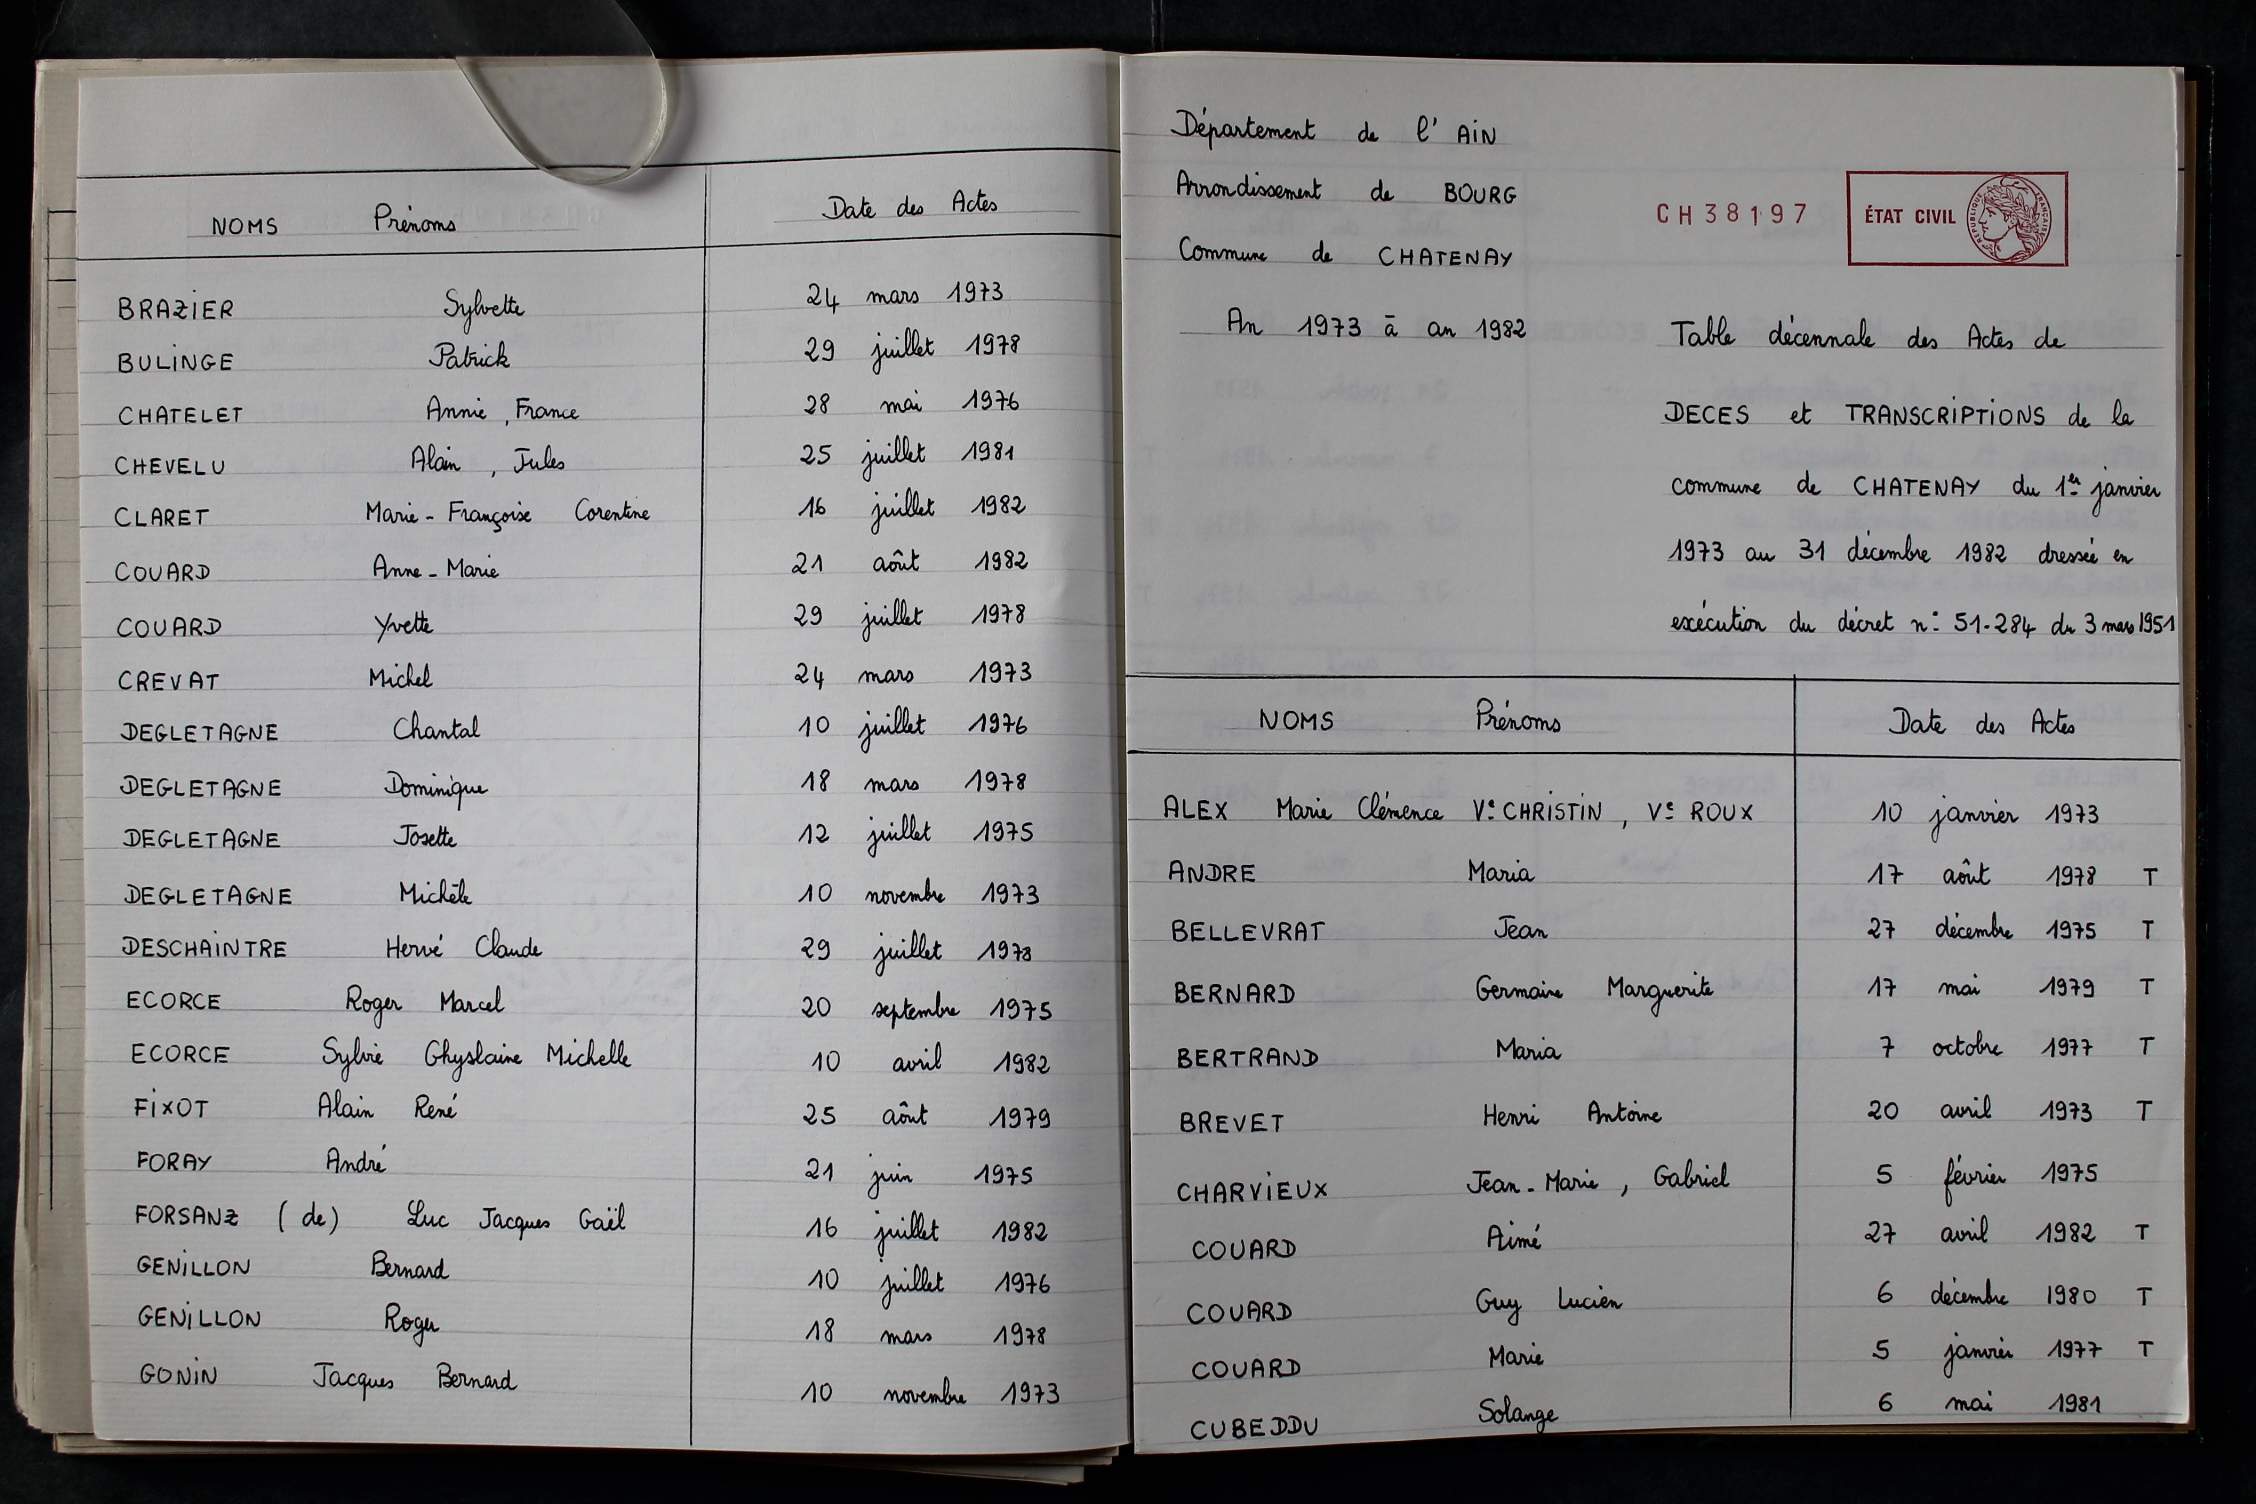 NOMS Prénoms Date des Actes
BRAZIER Sylvette 24 mars 1973
BULINGE Patrick 29 juillet 1978
CHATELET Annie, France 28 mai 1976
CHEVELU Alain, Jules 25 juillet 1981
CLARET Marie-Françoise Corentine 16 juillet 1982
COUARD Anne-Marie 21 août 1982
COUARD Yvette 29 juillet 1978
CREVAT Michel 24 mars 1973
DEGLETAGNE Chantal 10 juillet 1976
DEGLETAGNE Dominique 18 mars 1978
DEGLETAGNE Josette 12 juillet 1975
DEGLETAGNE Michèle 10 novembre 1973
DESCHAINTRE Hervé Claude 29 juillet 1978
ECORCE Roger Marcel 20 septembre 1975
ECORCE Sylvie Ghyslaine Michelle 10 avril 1982
FIXOT Alain René 25 août 1979
FORAY André 21 juin 1975
FORSANZ (de) Luc Jacques Gaël 16 juillet 1982
GENILLON Bernard 10 juillet 1976
GENILLON Roger 18 mars 1978
GONIN Jacques Bernard 10 novembre 1973
Département de l'AIN
Arrondissement de BOURG
Commune de CHATENAY
CH38197
ÉTAT CIVIL
RÉPUBLIQUE FRANÇAISE
An 1973 à an 1982
Table décennale des Actes de
DECES et TRANSCRIPTIONS de la
commune de CHATENAY du 1er janvier
1973 au 31 décembre 1982 dressée en
exécution du décret n° 51-284 du 3 mars 1951
NOMS Prénoms Date des Actes
ALEX Marie Clémence Ve CHRISTIN, Ve ROUX 10 janvier 1973
ANDRE Maria 17 août 1978 T
BELLEVRAT Jean 27 décembre 1975 T
BERNARD Germaine Marguerite 17 mai 1979 T
BERTRAND Maria 7 octobre 1977 T
BREVET Henri Antoine 20 avril 1973 T
CHARVIEUX Jean-Marie, Gabriel 5 février 1975
COUARD Aimé 27 avril 1982 T
COUARD Guy Lucien 6 décembre 1980 T
COUARD Marie 5 janvier 1977 T
CUBEDDU Solange 6 mai 1981